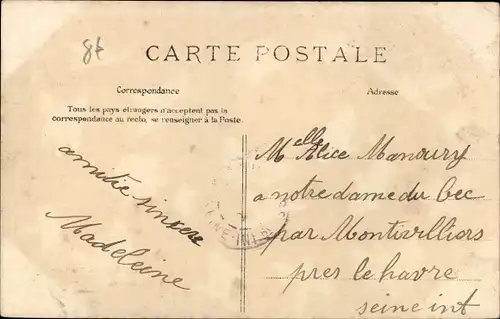 8f
CARTE POSTALE
Correspondance
Adresse
Tous les pays étrangers n'acceptent pas la
correspondance au recto, se renseigner à la Poste.
amitie sincere
Madeleine
Melle Alice Manoury
a notre dame du bec
par Montivilliers
pres le havre
seine inf